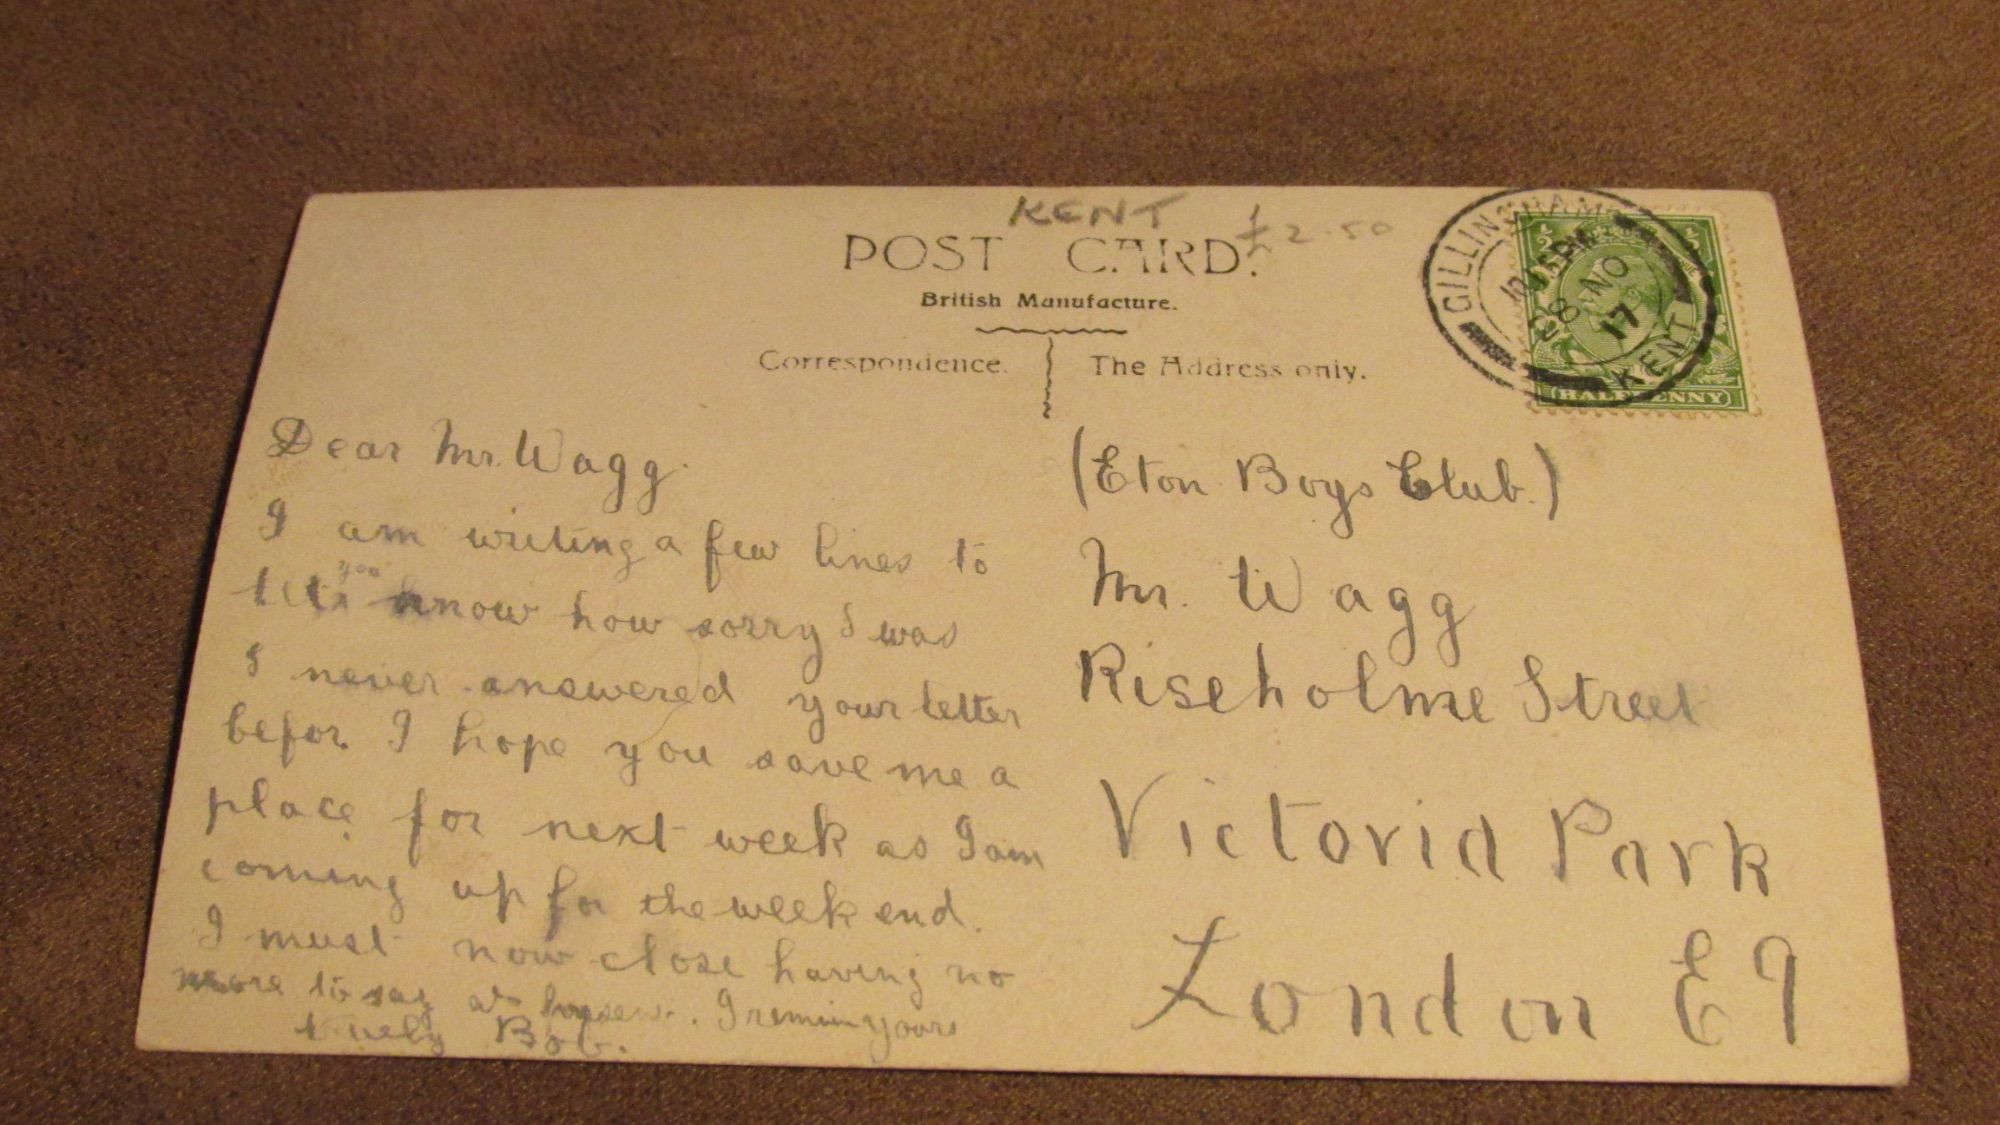 KENT £2.50
POST CARD.
British Manufacture.
Correspondence.
The Address only.
GILLINGHAM
KENT
10.15 PM
28 NO
17
HALFPENNY
Dear Mr. Wagg.
I am writing a few lines to
let you know how sorry I was
I never answered your letter
befor. I hope you save me a
place for next week as I am
coming up for the week end.
I must now close having no
more to say at . I remin yours
truely Bob.
(Eton Boys Club.)
Mr. Wagg
Riseholme Street
Victoria Park
London E9